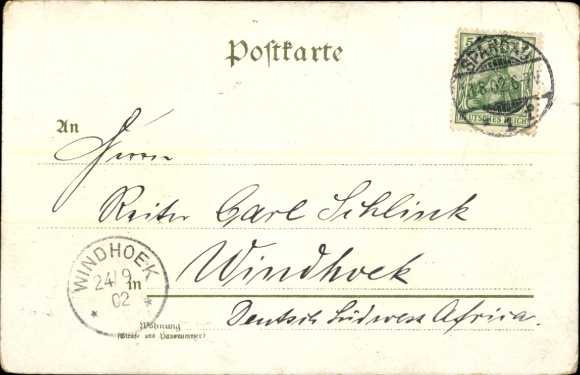 Postkarte
5
SPANDAU
.8.02.6-7
DEUTSCHES REICH
An
Herrn
Reiter Carl Schlink
WINDHOEK
24/9
02
in
Windhoek
Deutsch Südwest Afrika.
Wohnung
(Straße und Hausnummer)